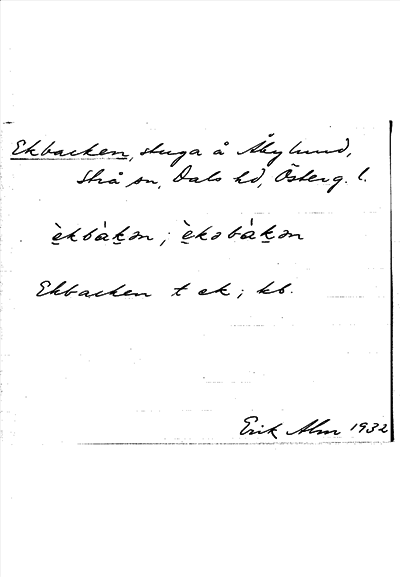 Ekbacken, stuga å Åbylund,
Strå sn, Dals hd, Österg. l.
è̤kbàk̤ən ; è̤kəbàk̤ən
Ekbacken t ek ; kb.
Erik Alm 1932